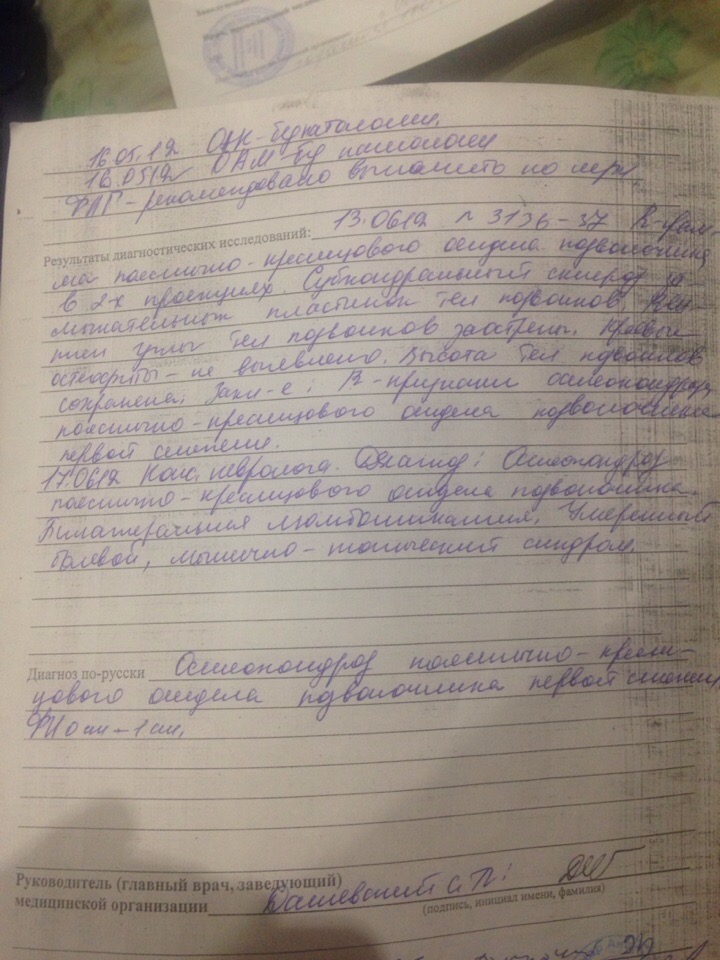 16.05.12 ОАК - б/патологии
16.0512 ОАМ б/ патологии
ФЛГ - рекомендовано выполнить по
Результаты диагностических исследований: 13.0612 № 3136-37 R-грам-
ма пояснично-кресцового отдела позвоночника
в 2х проекциях. Субхондральный склероз за
мыкательных пластинок тел позвонков
углы тел позвонков заострены. Краевые
остеофиты - не выявлено. Высота тел позвонков
сохранена; Закл-е: R-признаки остеохондроз
пояснично-кресцового отдела позвоночника
первой степени.
17.0612 Конс. невролога. Диагноз: Остеохондроз
пояснично-кресцового отдела позвоночника.
люмбоишиалгия, Умеренный
болевой, мышечно-тонический синдром.
Диагноз по-русски Остеохондроз пояснично-крест-
цового отдела позвоночника первой степени,
ФН 0 ст - 1 ст,
Руководитель (главный врач, заведующий)
медицинской организации
(подпись, инициал имени, фамилия)